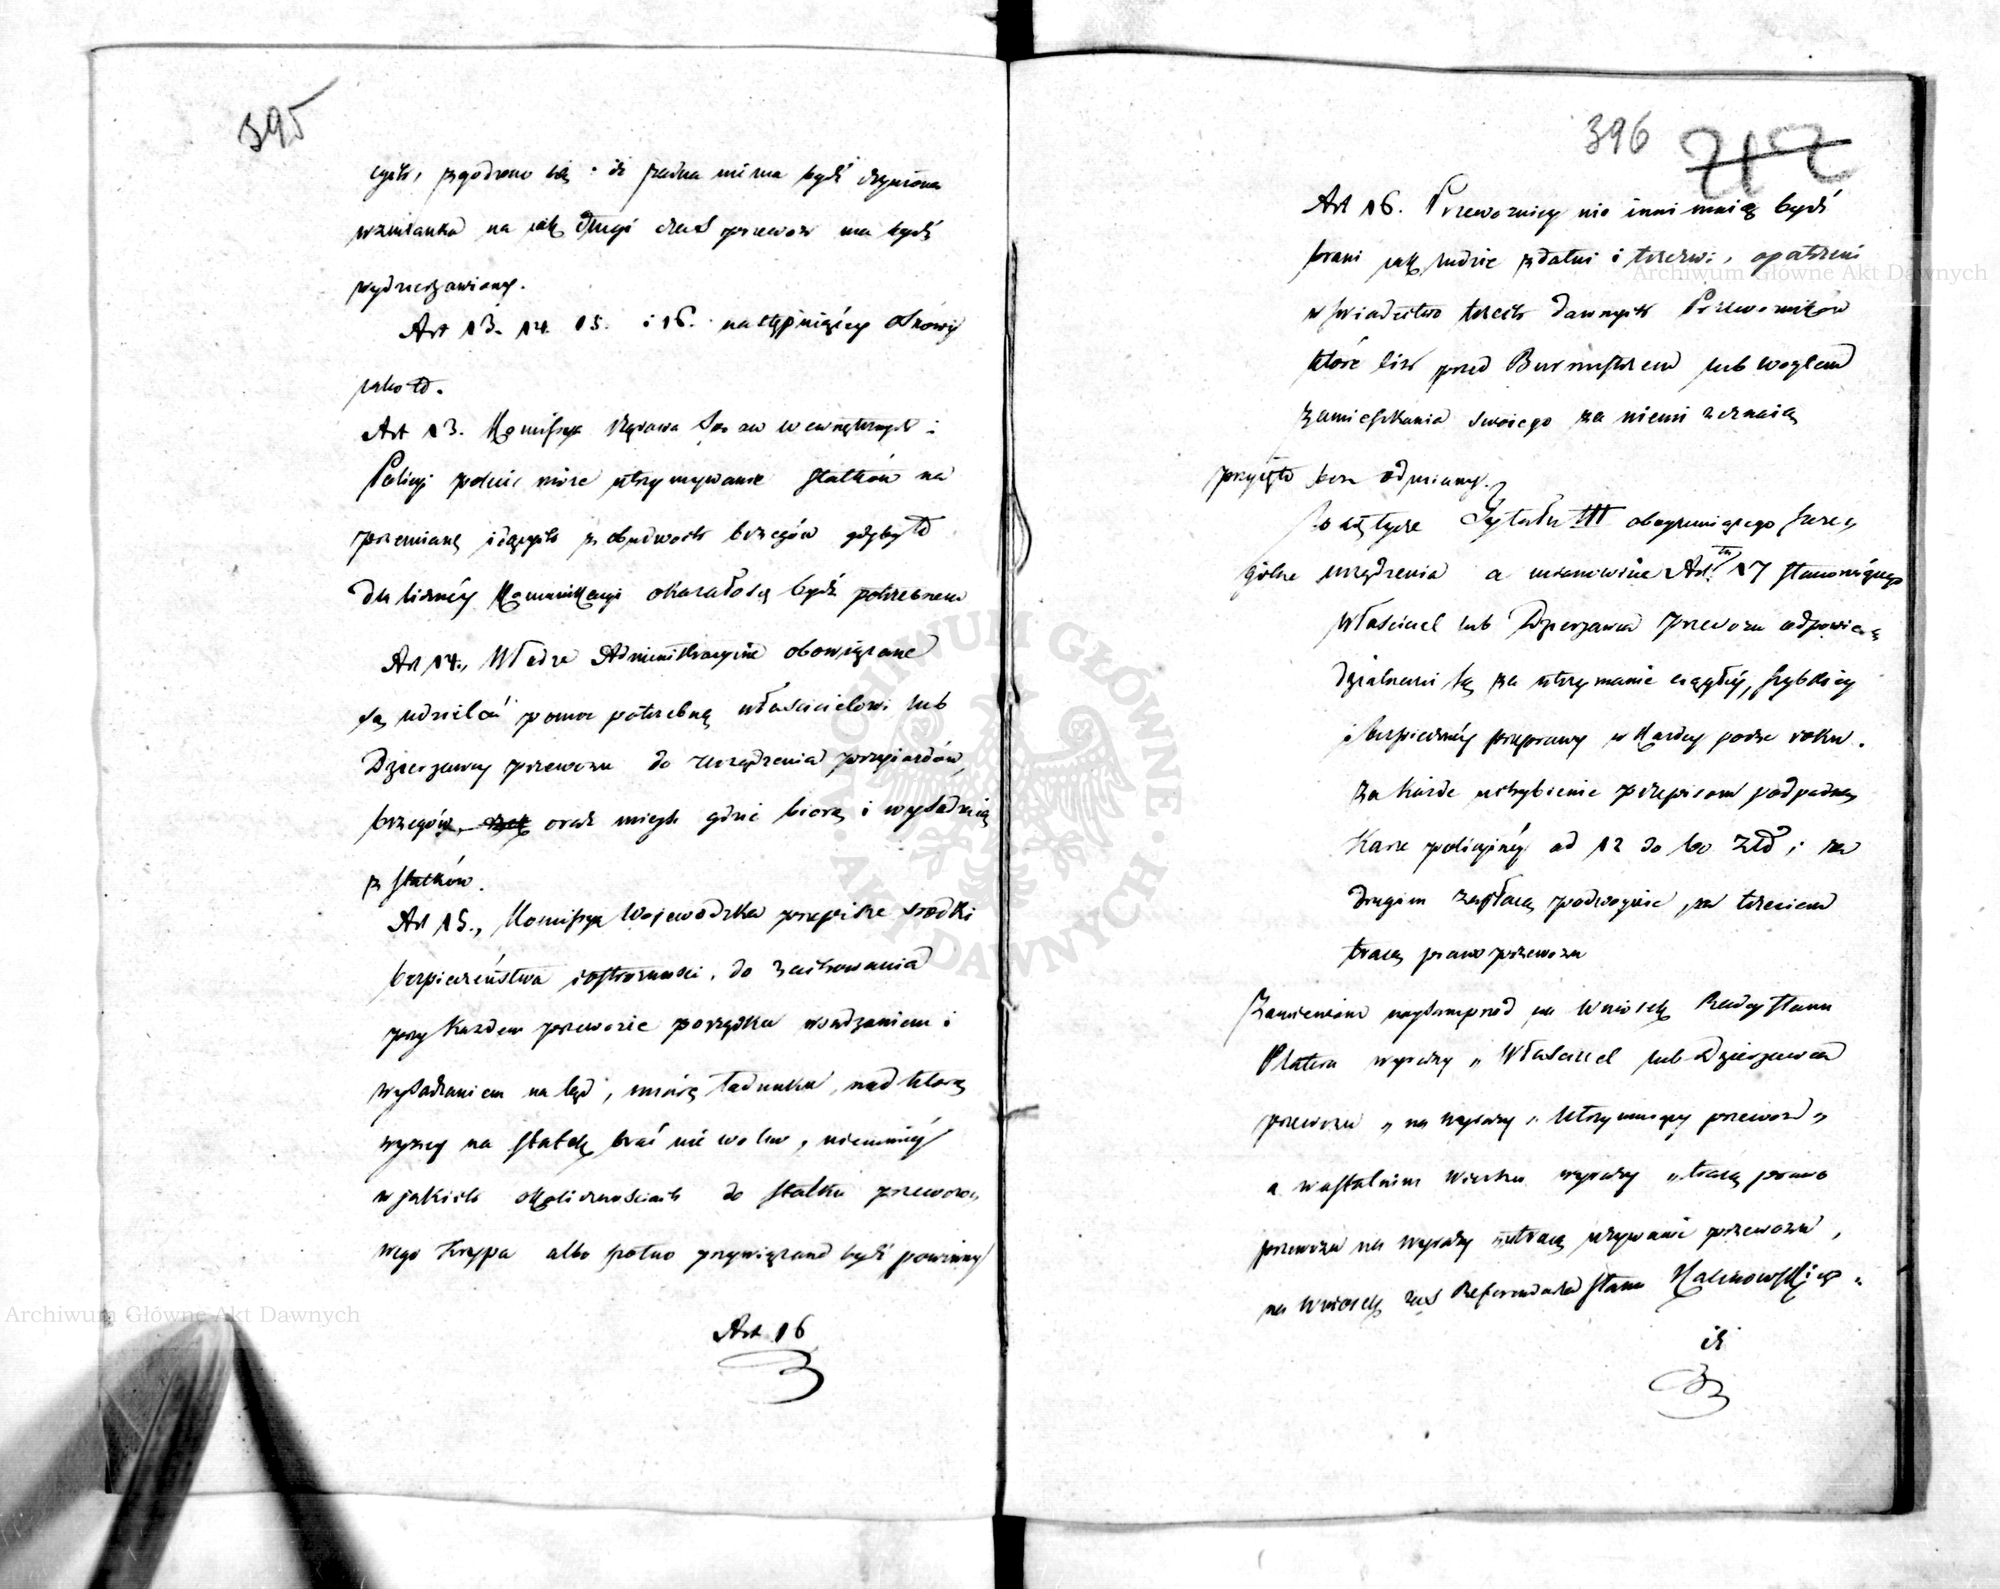 395
cych, zgodzono się: iż żadna nie ma bydź czyniona
wzmianka na jak długi czas przewóz ma bydź
wydzierżawiony.
Art 13. 14. 15. i 16. następuiący osnowy
jako to.
Art 13. Kommissya Rządowa Spraw Wewnętrznych i
Policyi polecić może utrzymywanie statków na
przemianę idących z obudwoch brzegów gdyby to
dla liczney Kommunikacyi okazałosię bydź potrzebnem
Art 14., Władze Administracyine obowiązane
są udzielać pomoc potrzebną właścicielowi lub
Dzierżawcy przewozu do urządzenia przyiazdów,
brzegów, oraz mieysc gdzie biorą i wysadzaią
z statków.
Art 15., Kommissya Wojewodzka przepisze środki
bezpieczeństwa i ostrożności, do zachowania
przy każdem przewozie porządku wsadzaniem i
wysadzaniem na ląd, miarę ładunku, nad którą
wyżey na statek brać nie wolno, niemniéy
w jakich okolicznościach do statku przewozo„
wego Krypa albo czółno przywiązane bydź powinny
Art 16
396
212
Art 16. Przewoznicy nie inni maią bydź
brani jak ludzie zdatni i trzezwi, opatrzeni
w świadectwo trzech dawnych Przewozników
które ciż przed Burmistrzem lub woytem
zamieszkania swoiego za niemi zeznaią
przyięto bez odmiany.
Co się tycze Tytułu III obeymuiącego szcze„
gólne urządzenia a mianowicie Art. 17 stanowiącego
Właściciel lub Dzierżawca przewozu odpowie„
dzialnemi są za utrzymanie ciągłéy, szybkiey
i bezpiecznéy przeprawy w każdey porze roku.
Za każde uchybienie przepisom podpadną
Karze policyinéy od 12 do 60 Złł; za
drugim zapłacą podwoynie, za trzeciem
tracą prawo przewozu
Zamieniono naysamprzód na wniosek Radcy Stanu
Platera wyrazy „Właściciel lub Dzierżawca
przewozu„ na wyrazy „Utrzymuiący przewoz„
a w ostatnim wierszu wyrazy „tracą prawo
przewozu na wyrazy „utracą używanie przewozu,
na wniosek zaś Referendarza Stanu Kalinowskiego„
iż
Archiwum Główne Akt Dawnych
Archiwum Główne Akt Dawnych
ARCHIWUM GŁÓWNE AKT DAWNYCH